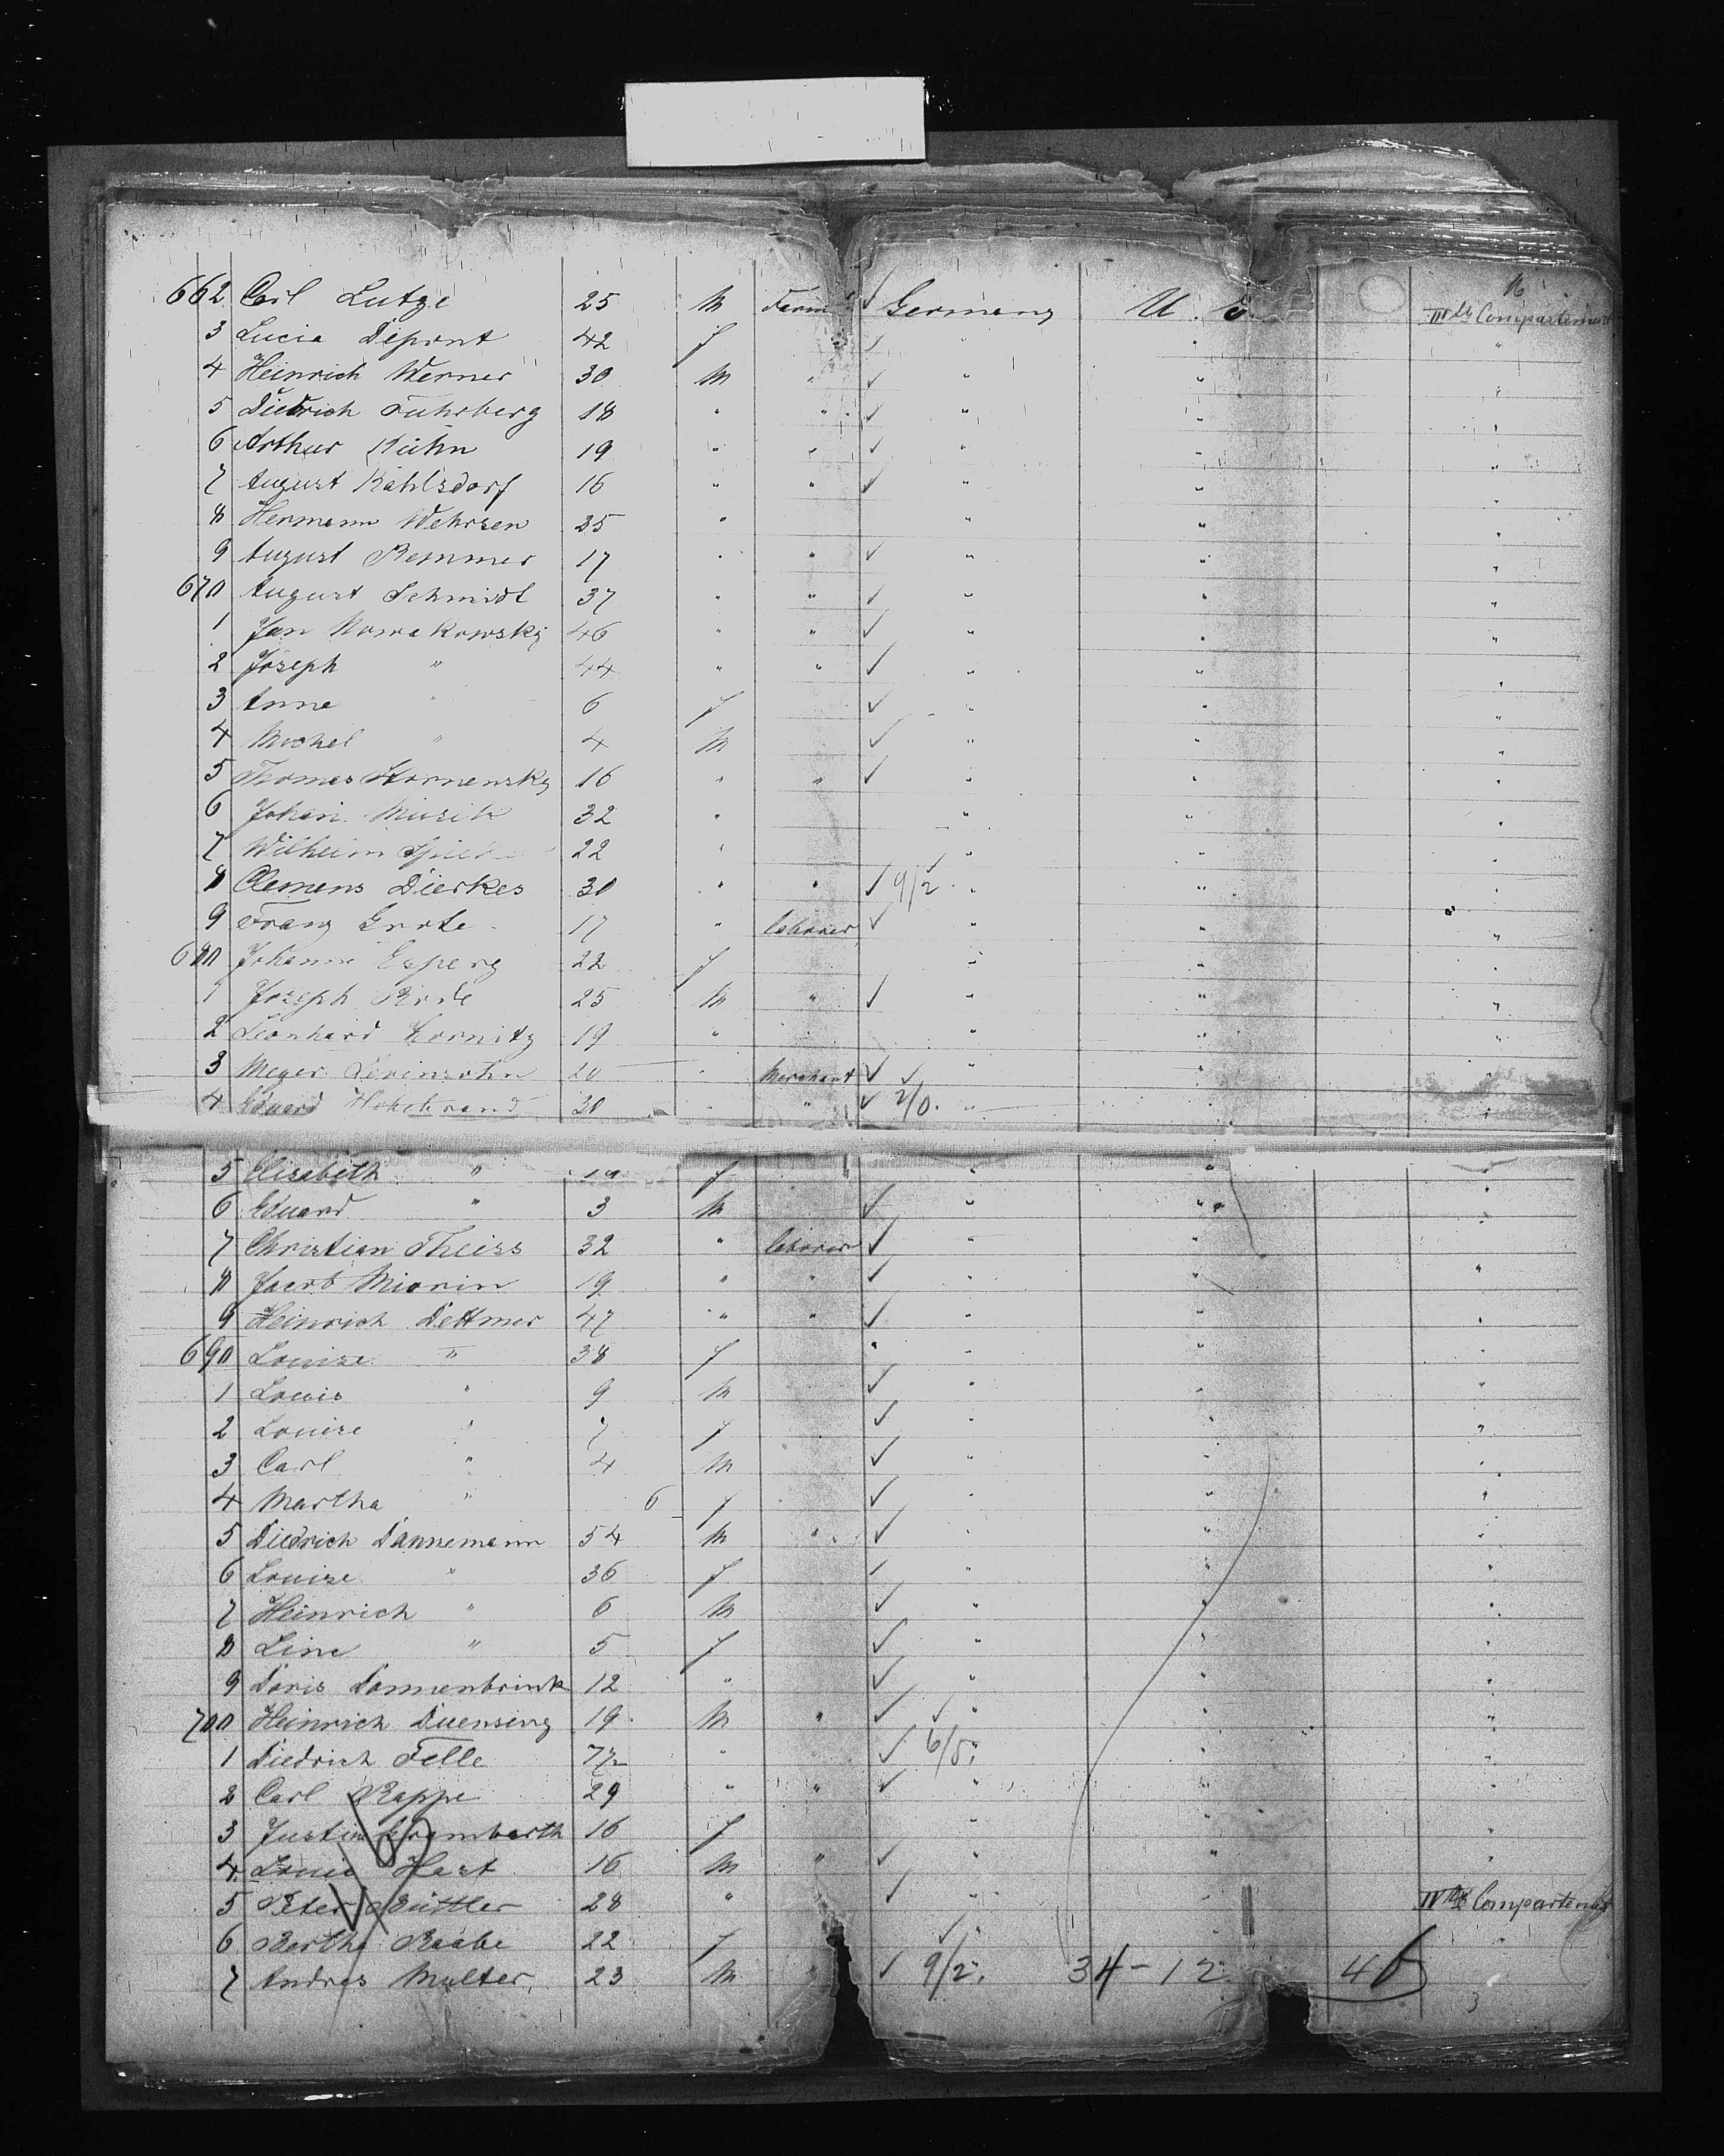 16
662 Carl Lutze 25 M Farm ✓ Germany U. S. III de Compartement
3 Lucia Depont 42 f ✓ " " "
4 Heinrich Werner 30 M " ✓ " " "
5 Diedrich Fuhrberg 18 " " ✓ " " "
6 Arthur Kuhn 19 " " ✓ " " "
7 August Kahlsdorf 16 " " ✓ " " "
8 Hermann Wehrsen 35 " " " "
9 August Remmer 17 " " ✓ " " "
670 August Schmidt 37 " " ✓ " " "
1 Jan Nowakowsky 46 " " ✓ " " "
2 Joseph " 44 " " ✓ " " "
3 Anna " 6 f ✓ " " "
4 Michel " 4 M ✓ " " "
5 Thomas 16 " " ✓ " " "
6 Johan 32 " " " "
7 Wilhelm 22 " ✓ " " "
8 Clemens Dierkes 30 " " ✓ 9/2 " " "
9 Franz Grote 17 " laborer ✓ " " "
680 Johanne Esperg 22 f " " "
1 Joseph Rode 25 M " ✓ " " "
2 Leonhard Kornitz 19 " " " "
3 Meyer Levinsohn 20 " Merchant ✓ ✓ " " "
4 Eduard 30 " " ✓ 2/0. " " "
5 Elisabeth " 19 f " " "
6 Eduard " 3 M ✓ " " "
7 Christian Theiss 32 " laborer ✓ " " "
8 Jacob Miorin 19 " " ✓ " " "
9 Heinrich Dettmer 47 " " ✓ " " "
690 Louise " 38 f " " "
1 Louis " 9 M ✓ " " "
2 Louise " 7 f ✓ " " "
3 Carl " 4 M ✓ " " "
4 Martha " 6 f ✓ " " "
5 Diedrich Dannemann 54 M " ✓ " " "
6 Louise " 36 f ✓ " " "
7 Heinrich " 6 M ✓ " " "
8 Line " 5 f ✓ " " "
9 Doris Dannenbrink 12 " ✓ " " "
700 Heinrich Duensing 19 M " ✓ ✓ " " "
1 Diedrich Felle 77 " ✓ 6/0. " " "
2 Carl Rappe 29 " " ✓ " " "
3 Justin Grambarth 16 f " " "
4 Louis Hast 16 M " ✓ " " "
5 Peter Büttler 28 " ✓ " " IV the Compartement
6 Bertha Raabe 22 f ✓ "
7 Andres Multer 23 M " ✓ 9/2. 34-12 46
3